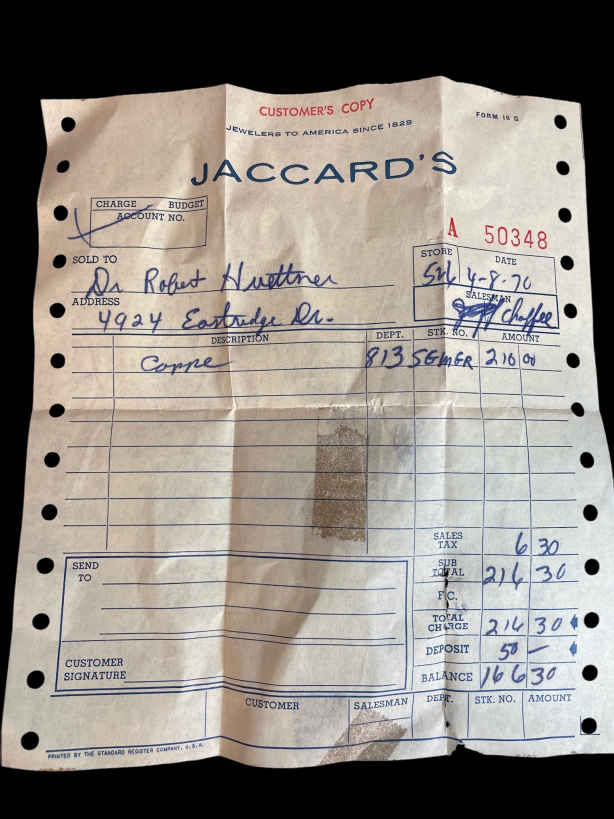 CUSTOMER'S COPY
FORM 16 G
JEWELERS TO AMERICA SINCE 1829
JACCARD'S
CHARGE BUDGET
ACCOUNT NO.
A 50348
SOLD TO
Dr Robert Huettner
STORE DATE
4-8-70
ADDRESS
4924 Eastridge Dr.
SALESMAN
Chaffee
DESCRIPTION DEPT. STK. NO. AMOUNT
Coppe 813 210 00
SALES TAX 6 30
SUB TOTAL 216 30
F.C.
TOTAL CHARGE 216 30
DEPOSIT 50 —
BALANCE 166 30
SEND TO
CUSTOMER SIGNATURE
CUSTOMER SALESMAN DEPT. STK. NO. AMOUNT
PRINTED BY THE STANDARD REGISTER COMPANY, U.S.A.